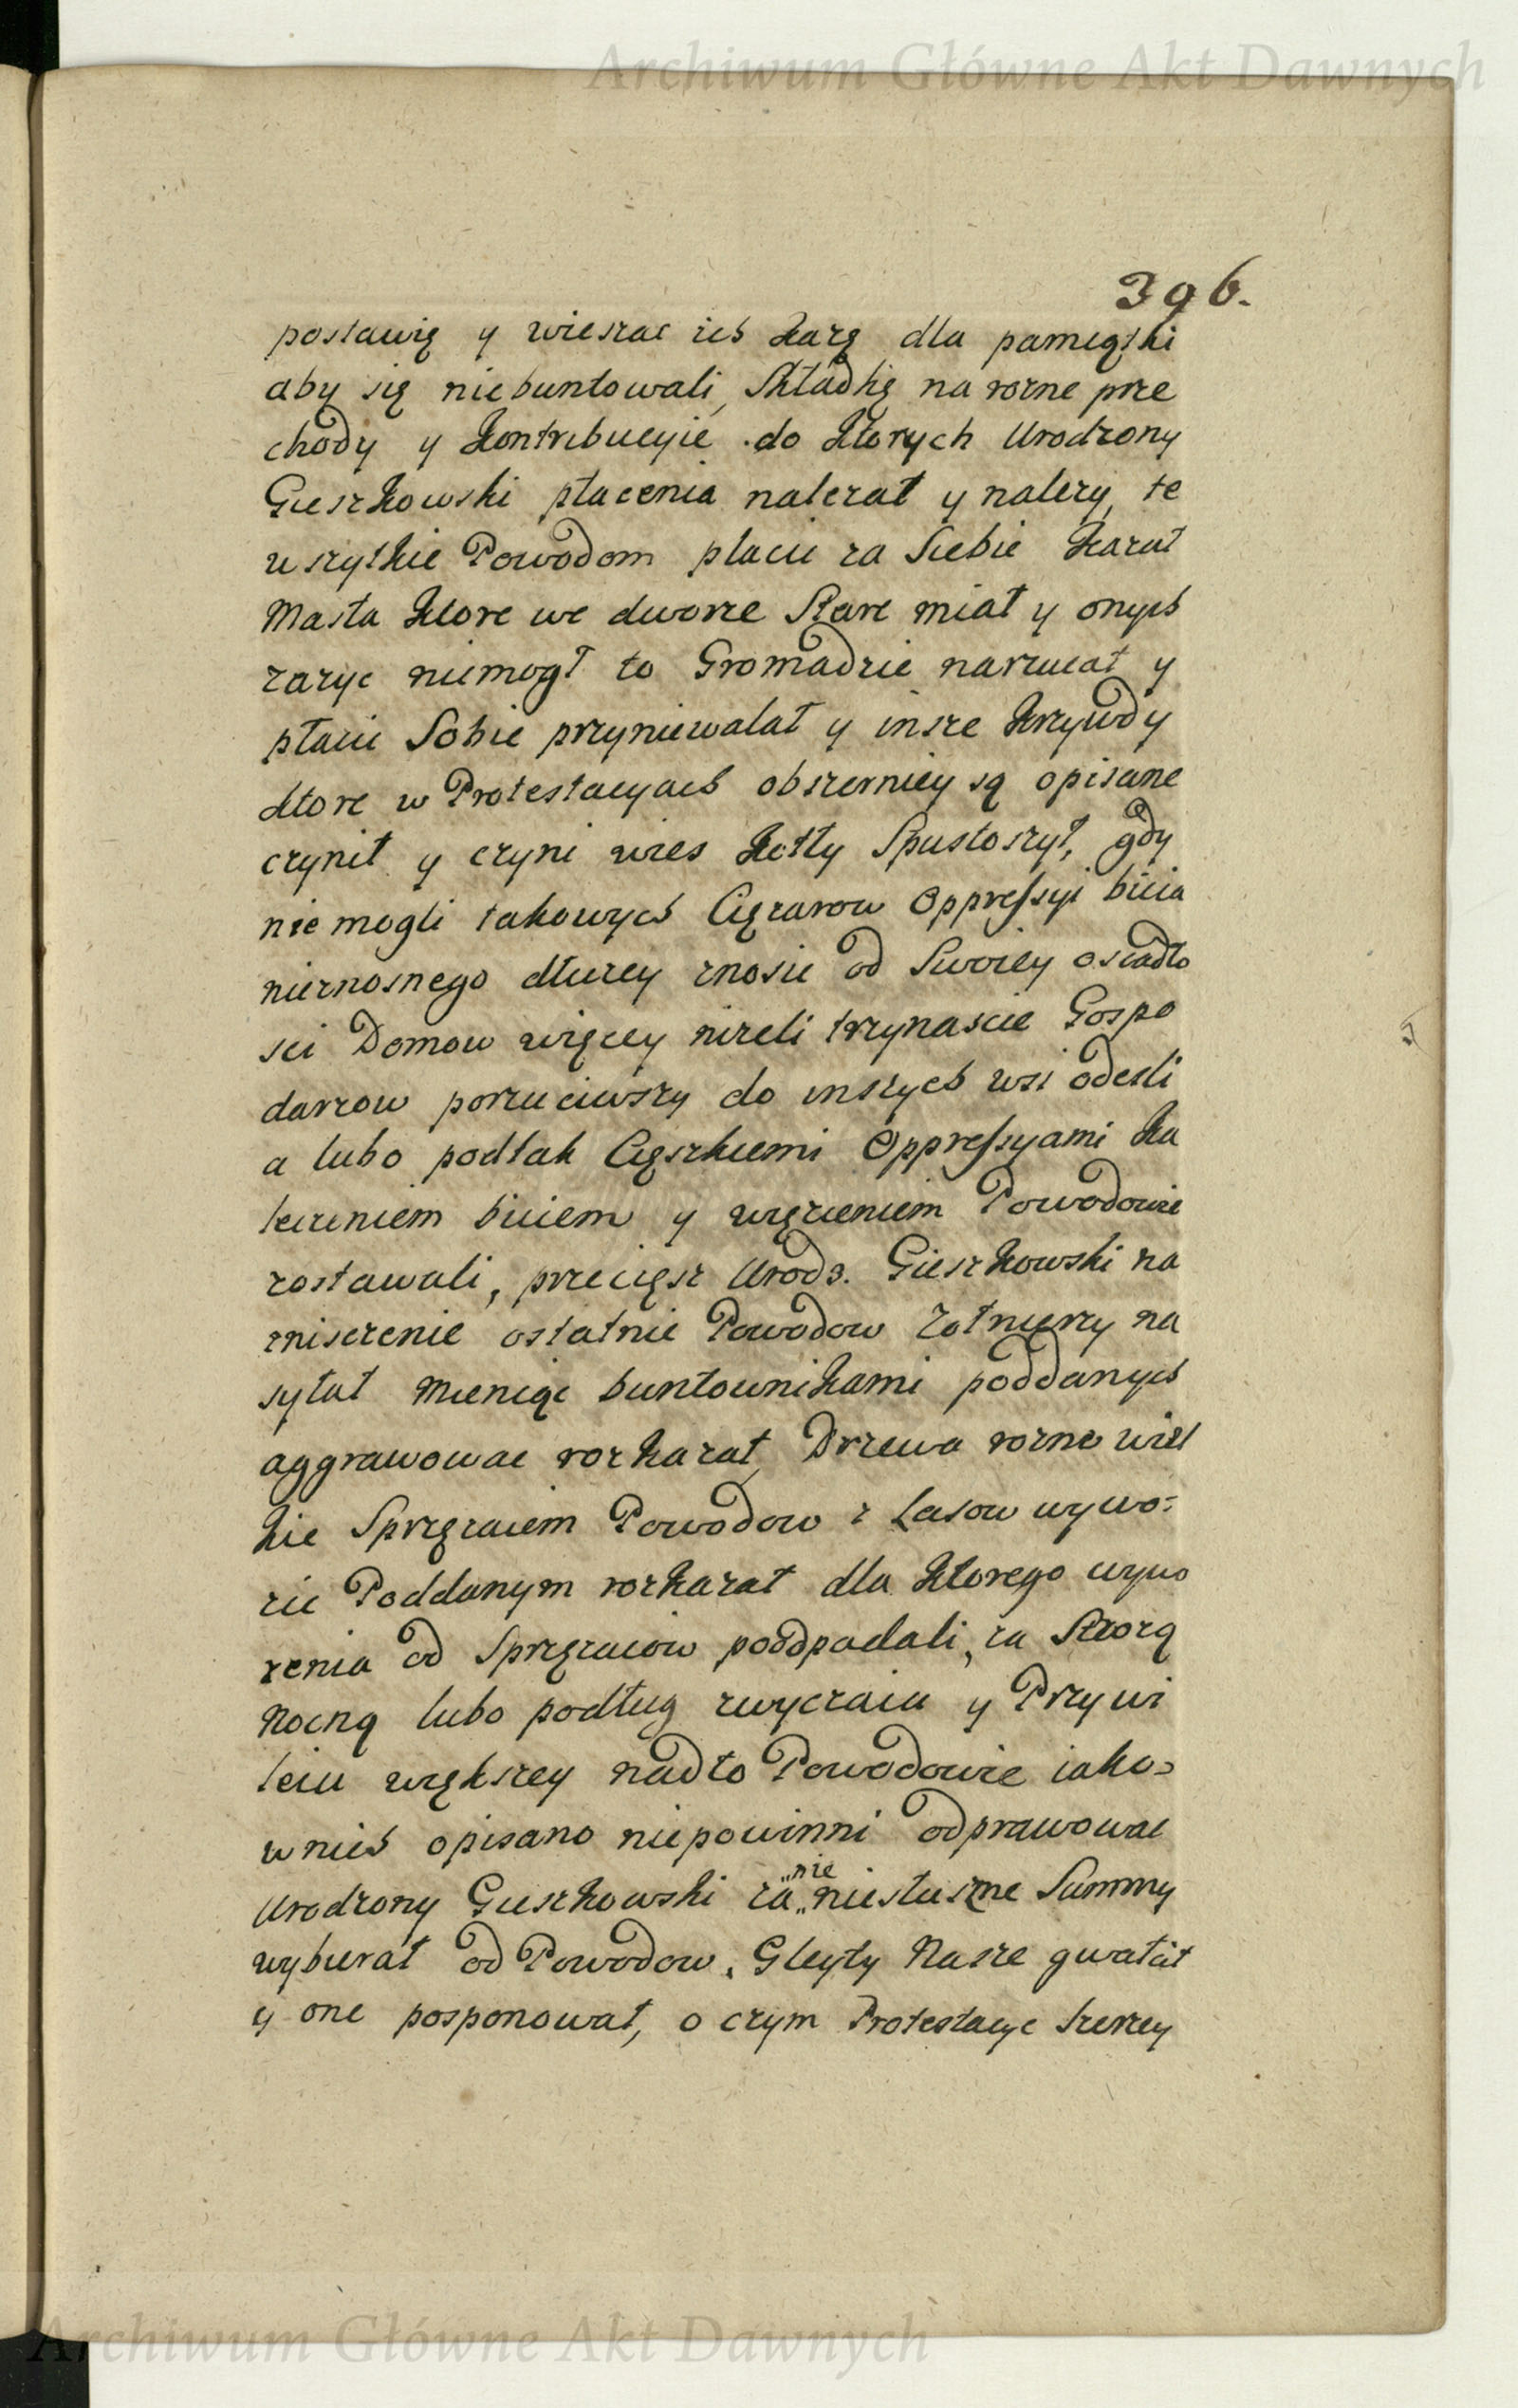 Archiwum Główne Akt Dawnych
396.
postawię y wieszac ich karzę dla pamiątki
aby się niebuntowali, Składkę na rozne prze
chody y kontrybucyie do ktorych Urodzony
Gieszkowski płacenia nalezał y nalezy, te
wszytkie Powodom płacic za Siebie kazał
Masła ktore we dworze Stare miał y onych
zazyc niemogł to Gromadzie narzucał y
płacic Sobie przyniewalał y insze krzywdy
ktore w Protestacyach obszerniey są opisane
czynił y czyni wies Kotły Spustoszył, gdy
nie mogli takowych Cięzarow Oppressyi bicia
nieznosnego dłuzey znosic od Swoiey osiadło
sci Domow więcey nizeli trzynascie Gospo
darzow porzuciwszy do inszych wsi odesli
a lubo podtak Cięszkiemi Oppressyami ka
leczeniem biciem y więzieniem Powodowie
zostawali, przecięsz Urodz. Gieszkowski na
zniszczenie ostatnie Powodow Zołnierzy na
syłał mieniąc buntownikami poddanych
aggrawowac rozkazał, Drzewa rozne wiel
kie Sprzęzaiem Powodow z Lasow wywo=
zic Poddanym rozkazał dla ktorego wywo
zenia od Sprzęzaiow poodpadali, za Strozą
Nocną lubo podług zwyczaiu y Przywi
leiu większey nadto Powodowie iako=
wnich opisano niepowinni odprawowac
Urodzony Gieszkowski za „nie„ niesłuszne Summy
wybierał od Powodow. Gleyty Nasze gwałcił
y one posponował, o czym Protestacye szerzey
Archiwum Główne Akt Dawnych